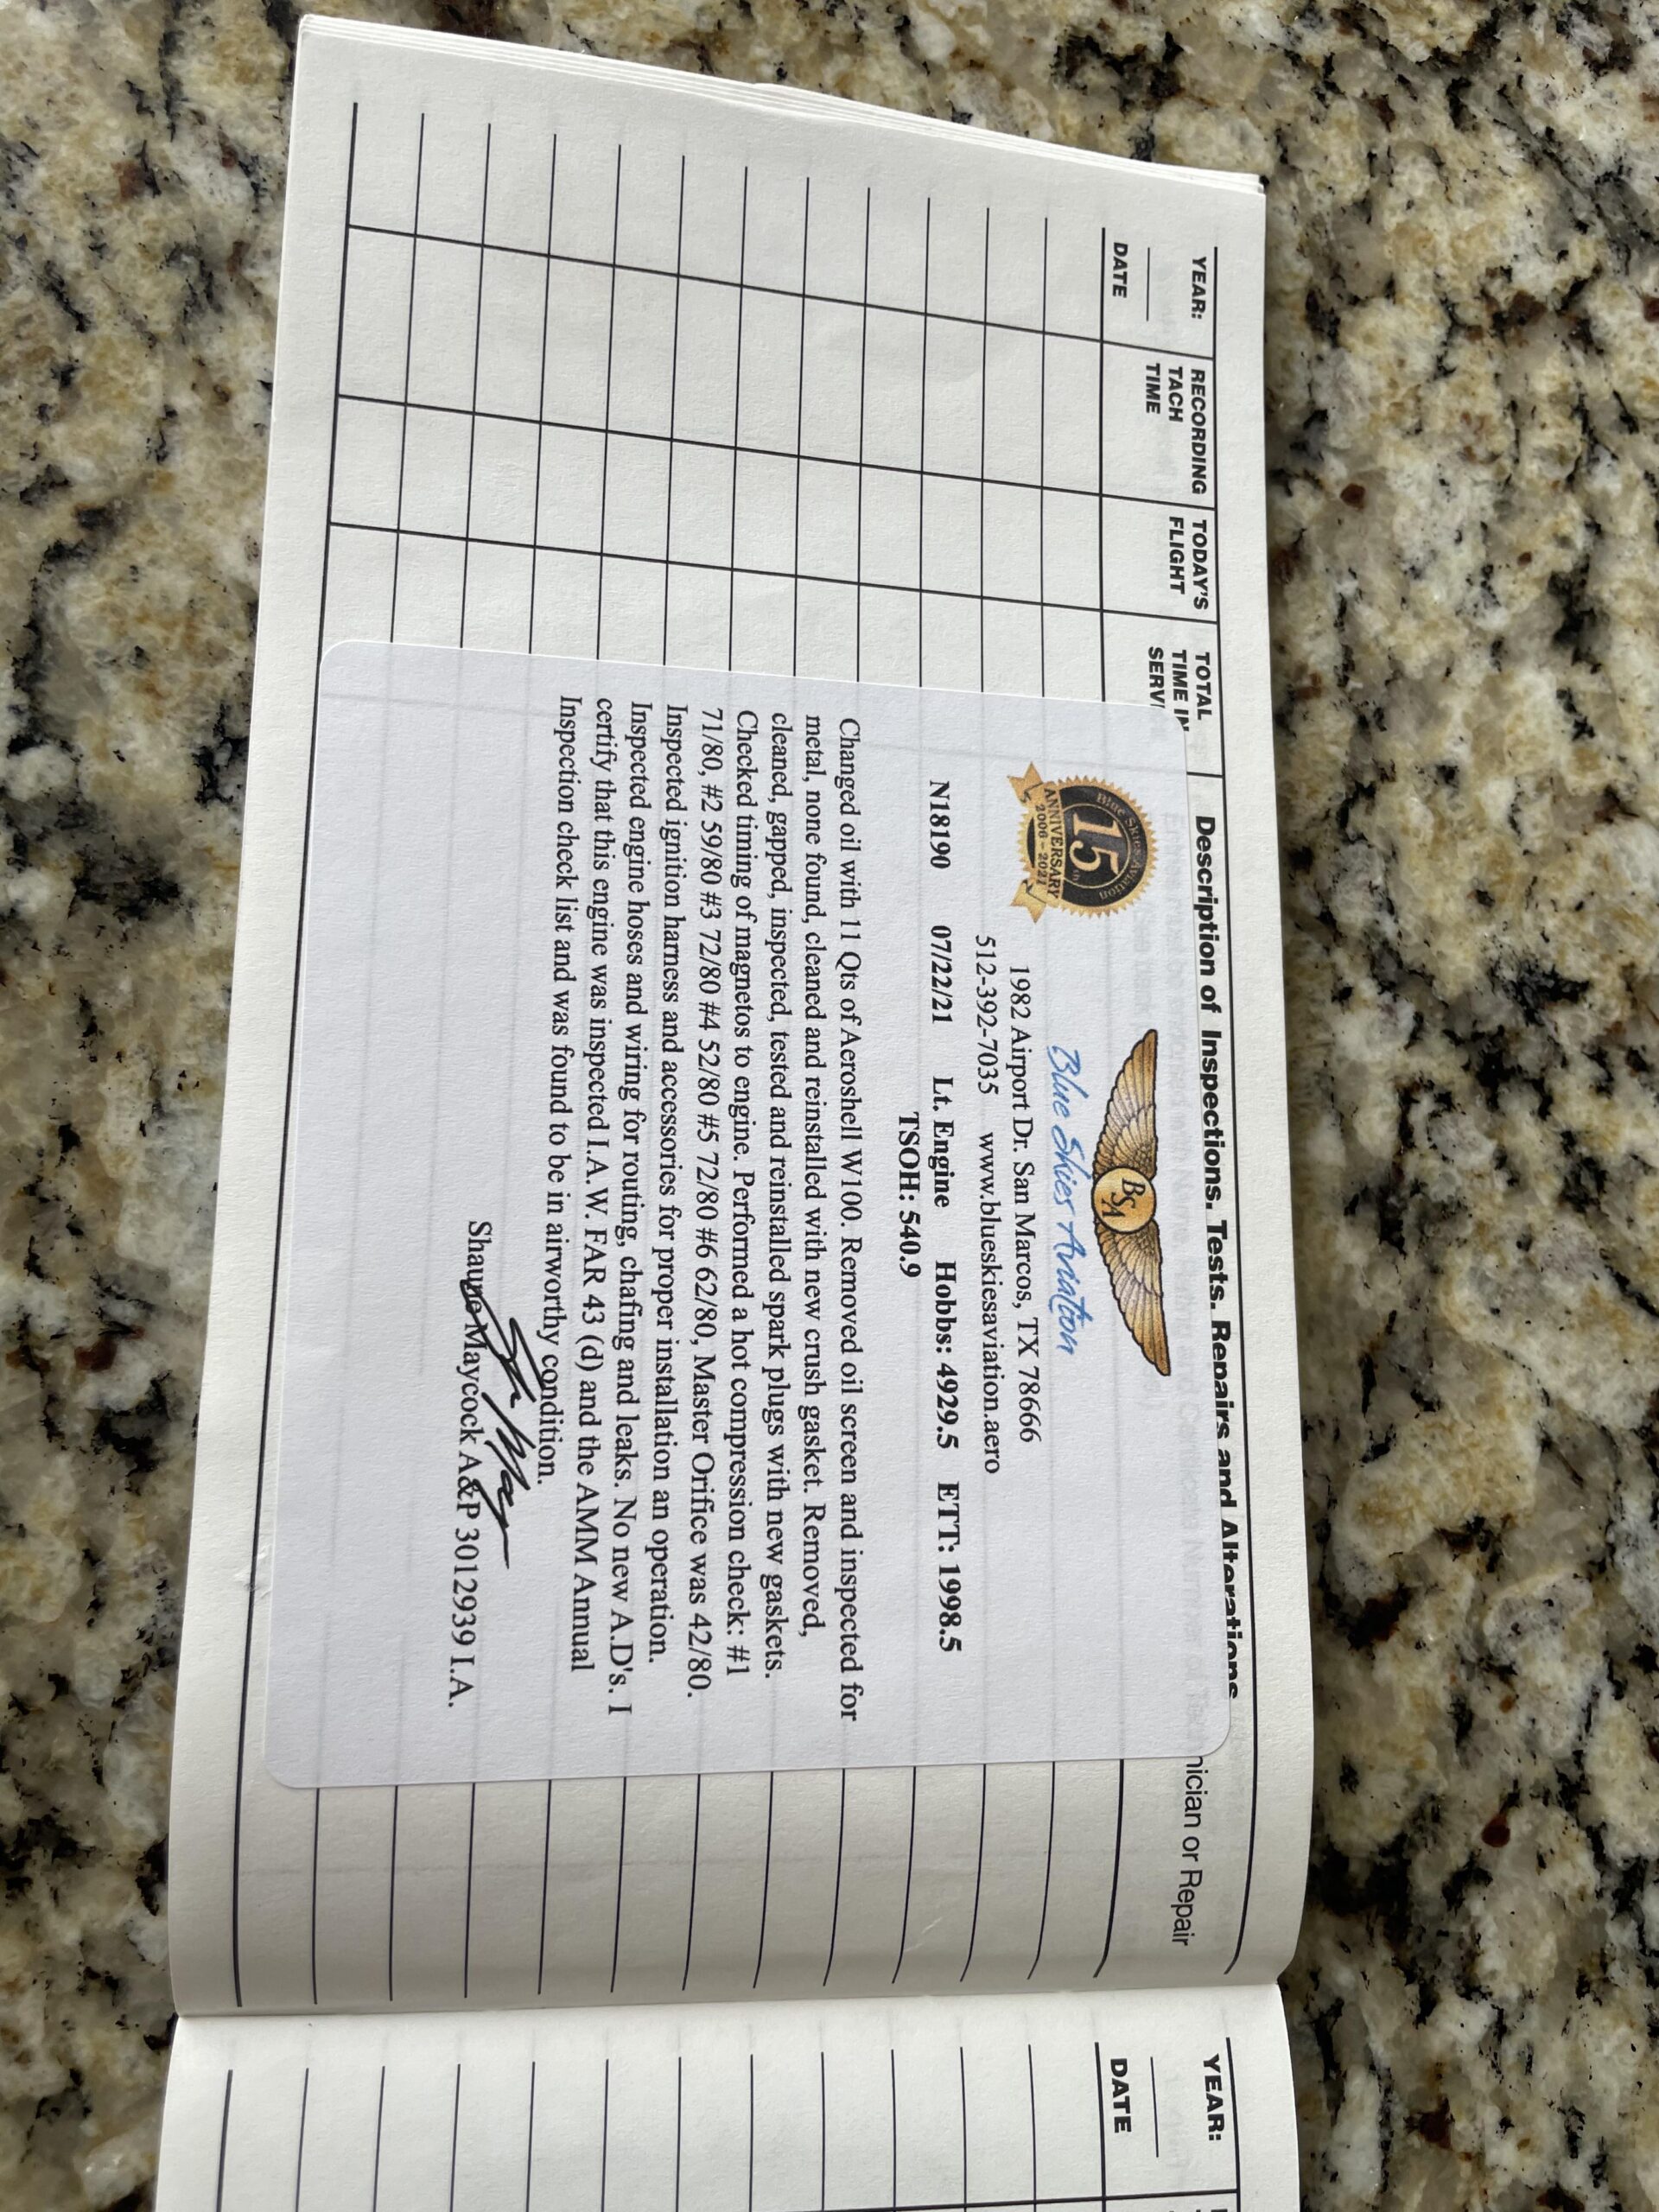 YEAR:
DATE
RECORDING
TACH
TIME
TODAY'S
FLIGHT
TOTAL
TIME IN
SERVI
Description of Inspections, Tests, Repairs and Alterations
nician or Repair
Blue Skies Aviation
15
th
ANNIVERSARY
2006 - 2021
BSA
Blue Skies Aviation
1982 Airport Dr. San Marcos, TX 78666
512-392-7035 www.blueskiesaviation.aero
N18190 07/22/21 Lt. Engine Hobbs: 4929.5 ETT: 1998.5
TSOH: 540.9
Changed oil with 11 Qts of Aeroshell W100. Removed oil screen and inspected for
metal, none found, cleaned and reinstalled with new crush gasket. Removed,
cleaned, gapped, inspected, tested and reinstalled spark plugs with new gaskets.
Checked timing of magnetos to engine. Performed a hot compression check: #1
71/80, #2 59/80 #3 72/80 #4 52/80 #5 72/80 #6 62/80, Master Orifice was 42/80.
Inspected ignition harness and accessories for proper installation an operation.
Inspected engine hoses and wiring for routing, chafing and leaks. No new A.D's. I
certify that this engine was inspected I.A.W. FAR 43 (d) and the AMM Annual
Inspection check list and was found to be in airworthy condition.
Shaune Maycock A&P 3012939 I.A.
YEAR:
DATE